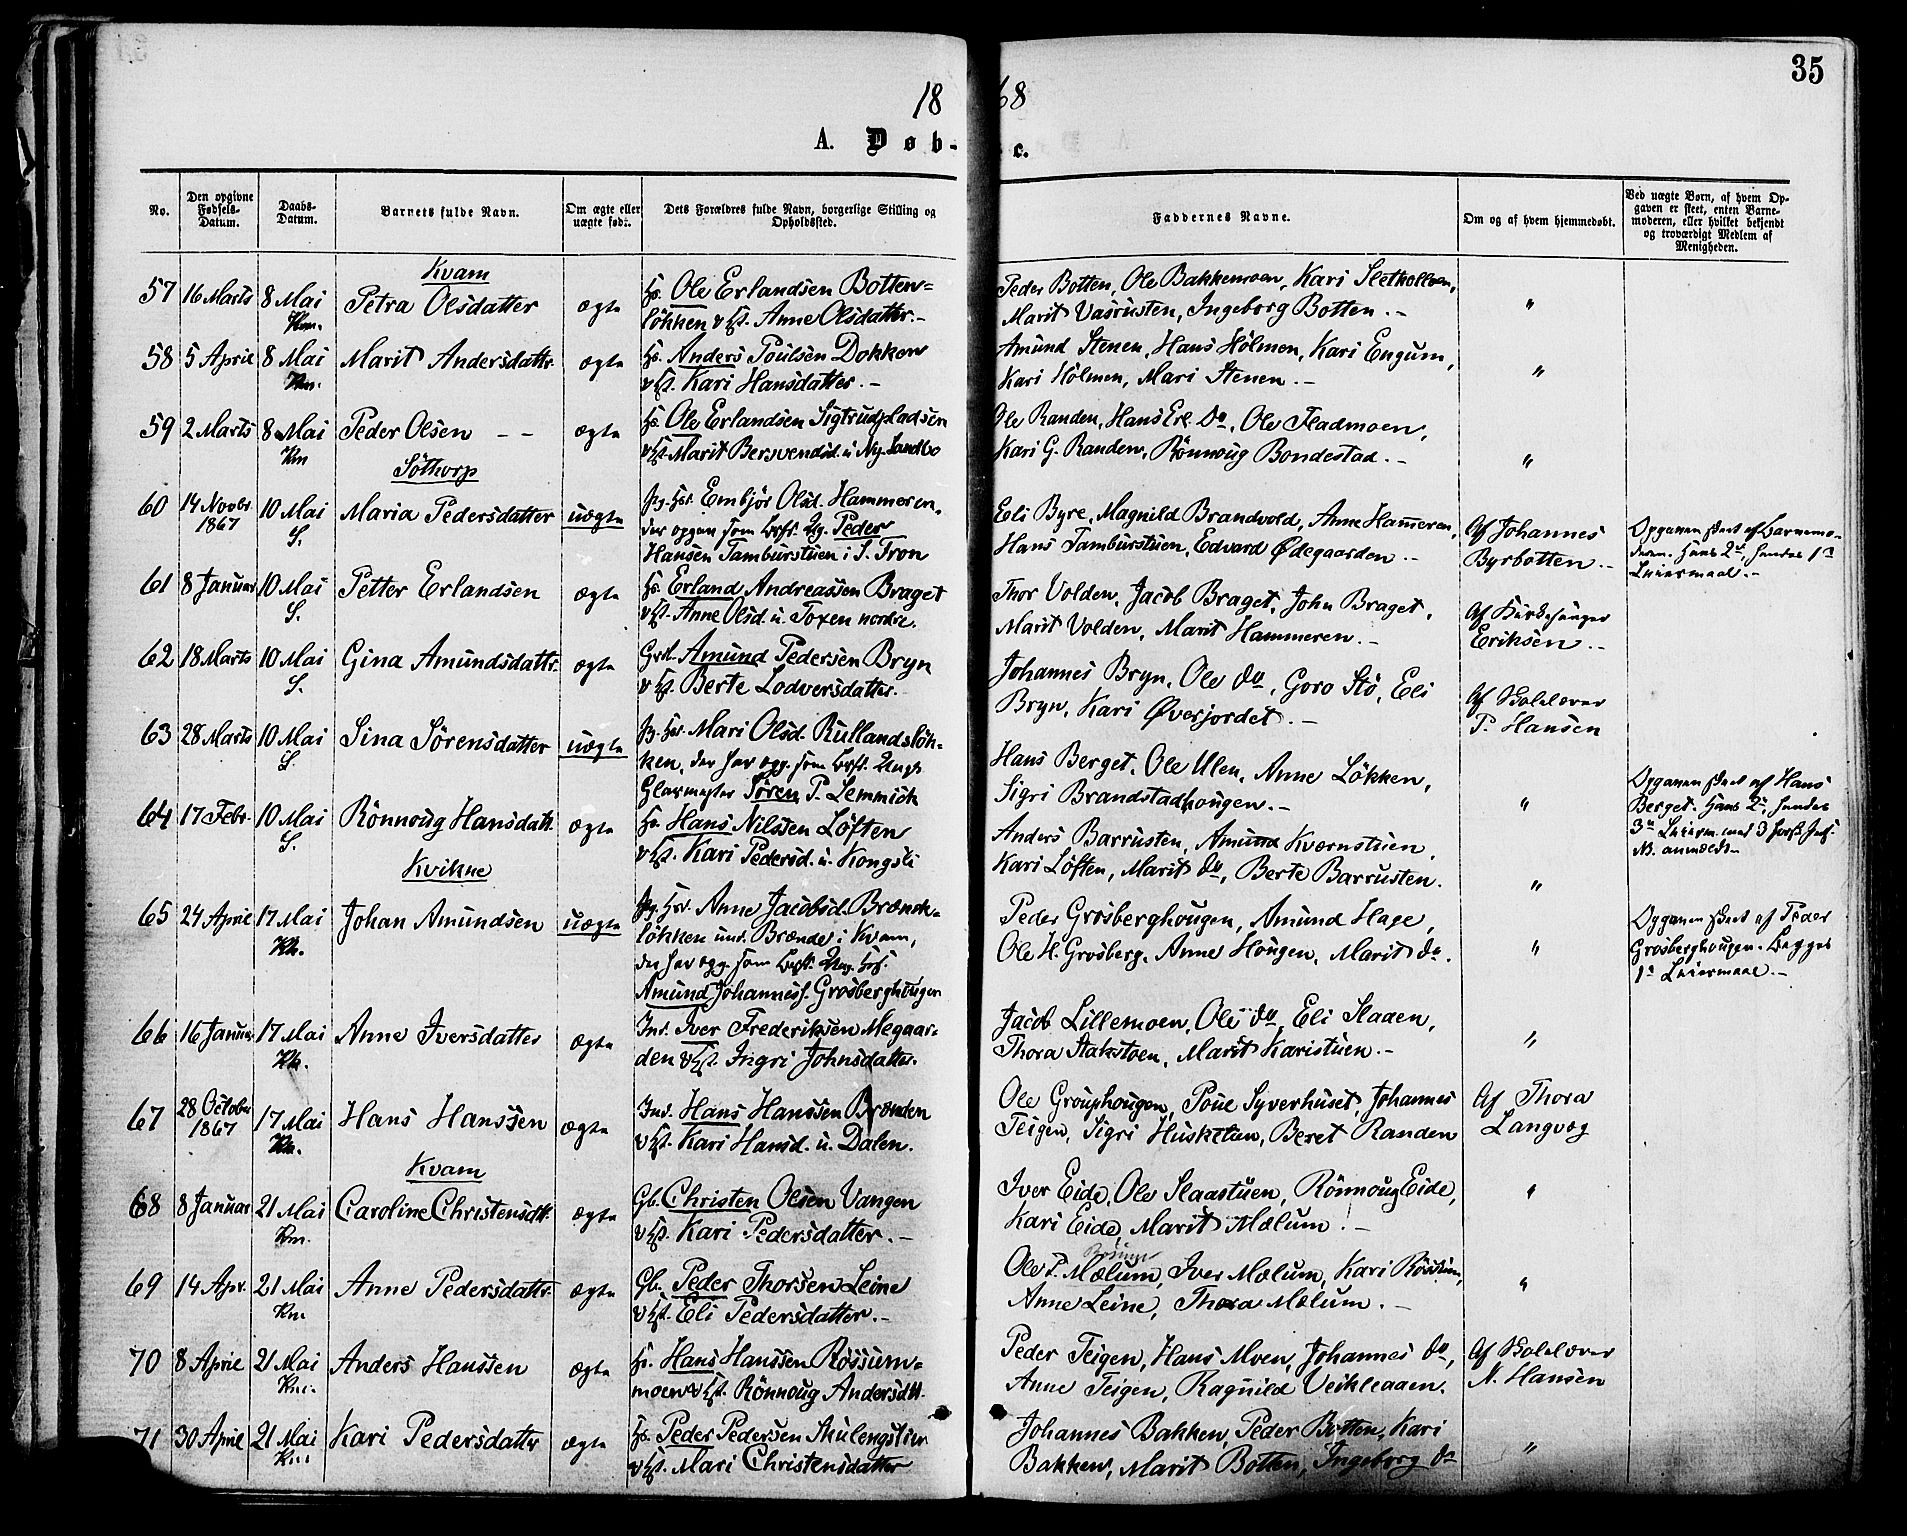 35
18 68
A. Døb- c.
No.
Den opgivne Fødsels-Datum.
Daabs-Datum.
Barnets fulde Navn.
Om ægte eller uægte født.
Dets Forældres fulde Navn, borgerlige Stilling og Opholdssted.
Faddernes Navne.
Om og af hvem hjemmedøbt.
Ved uægte Børn, af hvem Opgaven er skeet, enten Barnemoderen, eller hvilket bekjendt og troværdigt Medlem af Menigheden.
Kvam
57 16 Marts 8 Mai Km. Petra Olsdatter ægte Hs. Ole Erlandsen Botten-
løkken & Hst. Anne Olsdatter.-
Peder Botten, Ole Bakkemoen, Kari Sletkollen,
Marit Vasrusten, Ingeborg Botten.- "
58 5 April 8 Mai Km. Marit Andersdattr. ægte Hs. Anders Poulsen Dokken
& Hst. Kari Hansdatter.-
Amund Stenen, Hans Holmen, Kari Engum,
Kari Holmen, Mari Stenen.- "
59 2 Marts 8 Mai Km Peder Olsen - - ægte Hs. Ole Erlandsen Sigtrudpladsen
& Hst. Marit Bersvendsd. u. Ny Sandbo
Ole Randen, Hans Erl. do, Ole Fladmoen,
Kari G. Randen, Rönnoug Bondestad.- "
Söthorp
60 14 Novbr. 1867 10 Mai S. Maria Pedersdatter uægte Pg. Embjør Olsd. Hammeren,
der opgav som Brf. Ug. Peder
Hansen Tamburstuen i S. Fron
Eli Byre, Magnild Brandvold, Anne Hammeren,
Hans Tamburstuen, Edvard Ødegaarden.-
Af Johannes
Byrbotten.-
Opgaven skeet af Barnemo-
deren. Hans 2det, hendes 1ste
Leiermaal.-
61 8 Januar 10 Mai S. Petter Erlandsen ægte Hs. Erland Andreassen Braget
& Hst. Anne Olsd. u. Toxen nordre.
Thor Volden, Jacob Braget, John Braget,
Marit Volden, Marit Hammeren.-
Af Kirkesanger
Eriksen.-
62 18 Marts 10 Mai S. Gina Amundsdattr. ægte Grd. Amund Pedersen Bryn
& Hst. Berte Lodversdatter.
Johannes Bryn, Ole do, Goro Stö, Eli
Bryn, Kari Øverjordet.-
Af Skolelærer
P. Hansen
63 28 Marts 10 Mai S. Sina Sörensdatter uægte Pg. Mari Olsd. Rullandsløk-
ken, der har opg. som Brf. Ungk.
Glarmester Sören P. Lemmich
Hans Berget, Ole Ulen, Anne Løkken,
Sigri Brandstadhougen.- "
Opgaven skeet af Hans
Berget. Hans 2det, hendes
3die Leierm. med 3 forsk.
anmeldt.-
64 17 Febr. 10 Mai S. Rönnoug Hansdatt. ægte Hs. Hans Nilssen Løften
& Hst. Kari Pedersd. u. Kongsli
Anders Barrusten, Amund Kvernstuen,
Kari Løften, Marit do, Berte Barrusten. "
Kvikne
65 24 April 17 Mai Kk. Johan Amundsen uægte Pg. Anne Jacobsd. Brænd-
løkken und. Brænde i Kvam,
der har opg. som Brf. Ung.
Amund Johanness. Grosberghougen
Peder Grosberghougen, Amund Hage,
Ole H. Grosberg, Anne Hougen, Marit do. "
Opgaven skeet af Peder
Grosberghougen. Begges
1ste Leiermaal.-
66 16 Januar 17 Mai Kk. Anne Iversdatter ægte Ind. Iver Frederiksen Megaar-
den & Hst. Ingri Johnsdatter.
Jacob Lillemoen, Ole do, Eli Slaaen,
Thora Stakstoen, Marit Karistuen.- "
67 28 October 1867 17 Mai Kk. Hans Hanssen ægte Ind. Hans Hanssen Brenden
& Hst. Kari Hansd. u. Dalen.
Ole Grouphougen, Poul Syverhuset, Johannes
Teigen, Sigri Huskelien, Beret Randen
Af Thora
Langvæg
Kvam
68 8 Januar 21 Mai Km. Caroline Christensdtt. ægte Gb. Christen Olsen Vangen
& Hst. Kari Pedersdatter.-
Iver Eide, Ole Slaastuen, Rönnoug Eide,
Kari Eide, Marit Mælum.- "
69 14 Apr. 21 Mai Km. Anne Pedersdattr. ægte Gb. Peder Thorsen Leine
& Hst. Eli Pedersdatter.-
Ole P. Mælum, Iver Mælum, Kari Røssum,
Anne Leine, Thora Mælum.- "
70 8 April 21 Mai Km. Anders Hanssen ægte Hs. Hans Hanssen Røssum-
moen & Hst. Rönnoug Andersdtt.
Peder Teigen, Hans Moen, Johannes do,
Anne Teigen, Ragnild Veikleaaen.
Af Skolelærer
N. Hansen
71 30 April 21 Mai Km. Kari Pedersdatter ægte Hs. Peder Pedersen Skulengslien
& Hst. Mari Christensdatter
Johannes Bakken, Peder Botten, Kari
Bakken, Marit Botten, Ingeborg do "